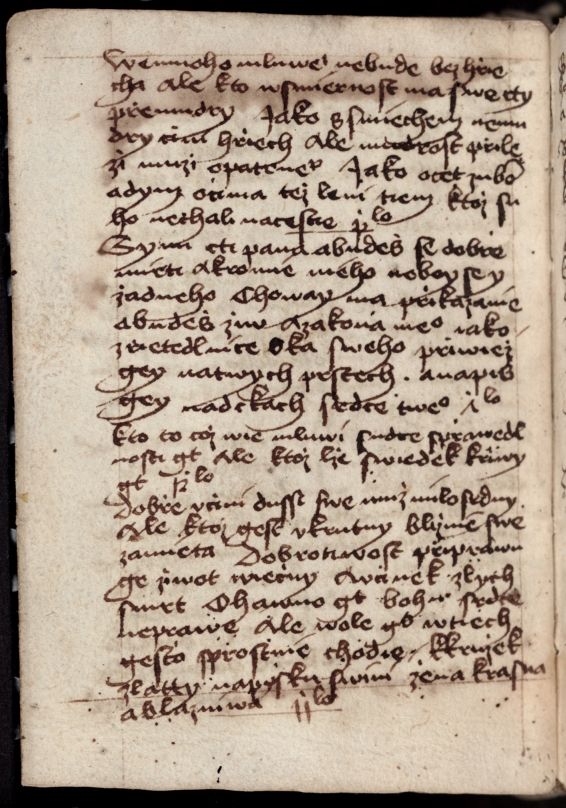 Wemnoho mluwe nebude bez hrie
cha Ale kto wsmiernost ma swe rty
przemudry Jako s smiechem nemu
dry cini hriech Ale mudrost prile
zi muzi opatrne Jako ocet zubo
a dym ocima tez leni tiem ktoz su
ho nethali naceste
Synu cti pana a budes se dobre
mieti A kromie nieho neboy se y
zadneho Choway ma prikazanie
a budes ziw A zakona meo iako
zrietedlnice oka sweho priwiez
gey natwych prstech . a napis
gey nadckach srdce tweo
kto to coz wie mluwi sudce sprawedl
nosti gt Ale ktoz lze swiedek kriwy
gt
Dobre cini dussi swe muz milosrdny
Ale ktoz gest vkrutny bliznie swe
zamieta Dobrotiwost priprawu
ge ziwot wiecny A winek zlych
smrt Ohawno gt bohu srdce
neprawe Ale wole geo wtiech
gesto sprostnie chodie . krujek
zlatty napysku swini zena krasna
a blazniwa